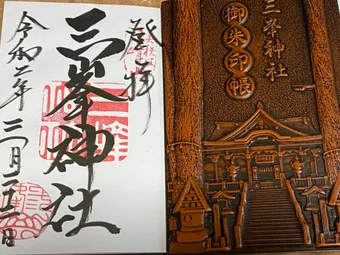 登拝
三峯神社
令和二年三月二十二日
三峯神社
御朱印帳